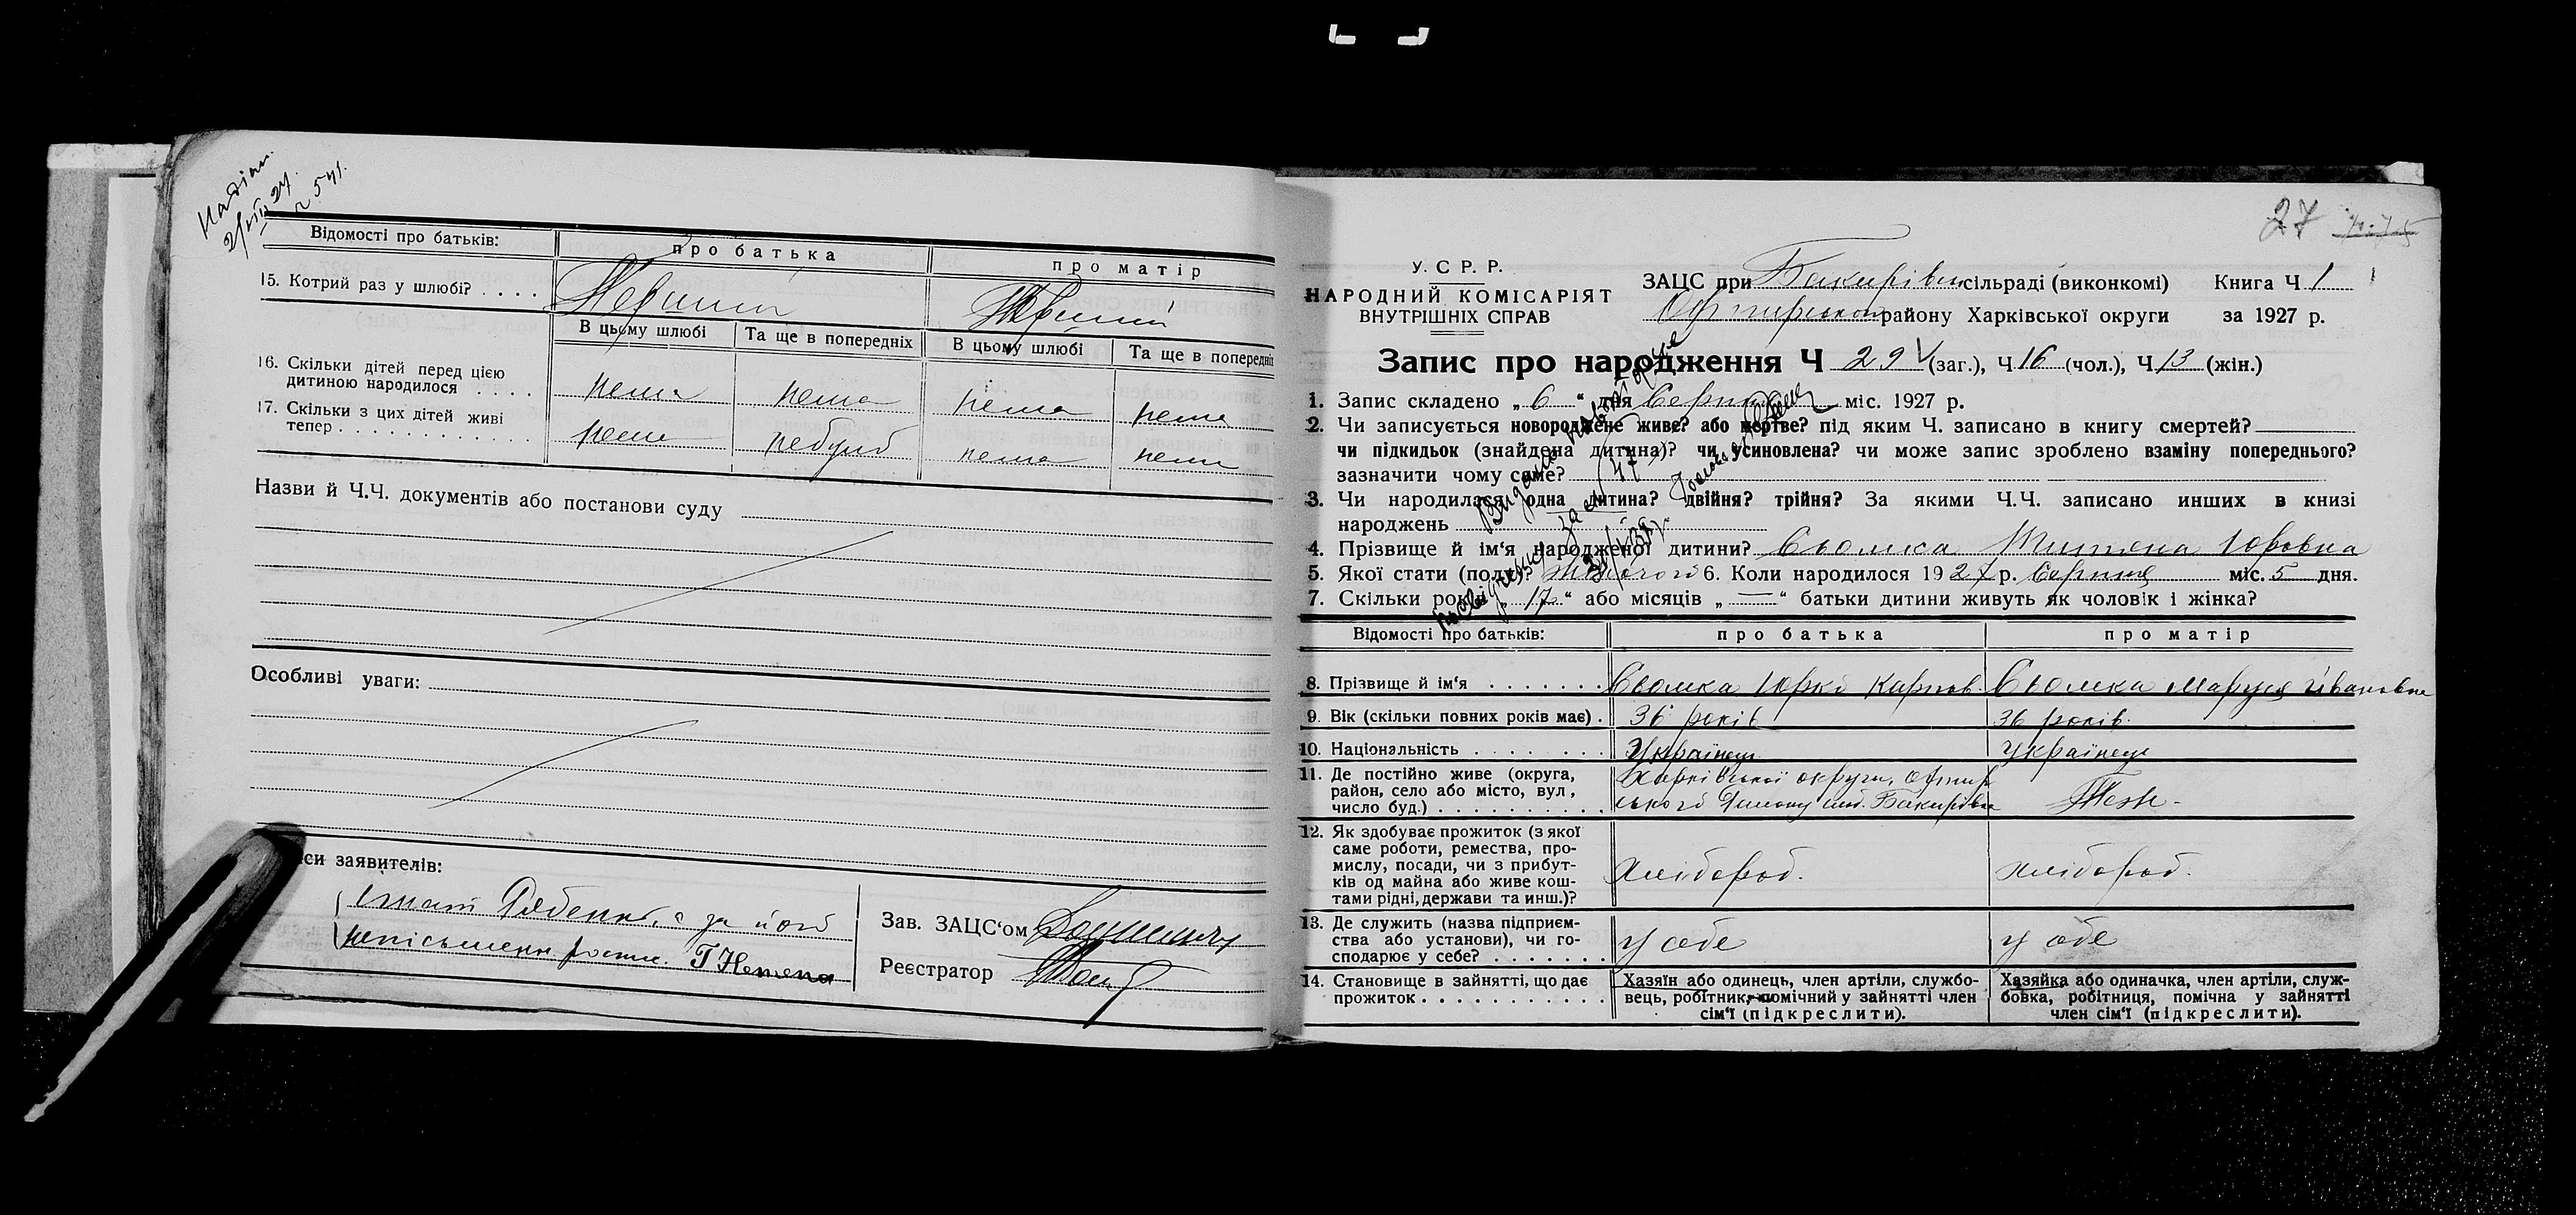 2/VIII 27.
Відомості про батьків:
про батька
про матір
15. Котрий раз у шлюбі? . . . .
Перший
Перший
В цьому шлюбі
Та ще в попередніх
В цьому шлюбі
Та ще в попередніх
16. Скільки дітей перед цією
дитиною народилося . . . .
нема
нема
нема
нема
17. Скільки з цих дітей живі
тепер . . . . . . . . . . . .
нема
небуло
нема
нема
Назви й Ч.Ч. документів або постанови суду
Особливі уваги:
си заявителів:
за його
Зав. ЗАЦС‘ом
Реєстратор
27
У. С. Р. Р.
НАРОДНИЙ КОМІСАРІЯТ
ВНУТРІШНІХ СПРАВ
ЗАЦС при Бакирівск сільраді (виконкомі)
Книга Ч 1
району Харківської округи
за 1927 р.
Запис про народження Ч 29 (заг.), Ч 16 (чол.), Ч 13 (жін.)
1. Запис складено „ 6 “ дня Серпня міс. 1927 р.
2. Чи записується новороджене живе? або мертве? під яким Ч. записано в книгу смертей?
чи підкидьок (знайдена дитина)? чи усиновлена? чи може запис зроблено взаміну попереднього?
зазначити чому саме?
3. Чи народилася одна дитина? двійня? трійня? За якими Ч.Ч. записано инших в книзі
народжень
4. Прізвище й ім‘я народженої дитини? Сьомка Титяна Юровна
5. Якої стати (полу)? Жіночого 6. Коли народилося 1927 р. Серпня міс. 5 дня.
7. Скільки років „ 17 “ або місяців „ — “ батьки дитини живуть як чоловік і жінка?
Видано повторне
Відомості про батьків:
про батька
про матір
8. Прізвище й ім‘я . . . . . .
Сьомка Юрко Карпов.
Сьомка Маруся Івановна
9. Вік (скільки повних років має) .
36 років
36 років.
10. Національність . . . . . . .
Українець
Українець
11. Де постійно живе (округа,
район, село або місто, вул,
число буд.) . . . . . . . . . .
Харківської округи, Охтир
ського Району с. Бакирівка
Теж-
12. Як здобуває прожиток (з якої
саме роботи, ремества, про-
мислу, посади, чи з прибут-
ків од майна або живе кош-
тами рідні, держави та инш.)?
хлібороб.
хлібороб.
13. Де служить (назва підприєм-
ства або установи), чи го-
сподарює у себе? . . . . . . .
у себе
у себе
14. Становище в зайнятті, що дає
прожиток . . . . . . . . . . .
Хазяїн або одинець, член артіли, службо-
вець, робітник, помічний у зайнятті член
сім‘ї (підкреслити).
Хазяйка або одиначка, член артіли, служ-
бовка, робітниця, помічна у зайнятті
член сім‘ї (підкреслити).